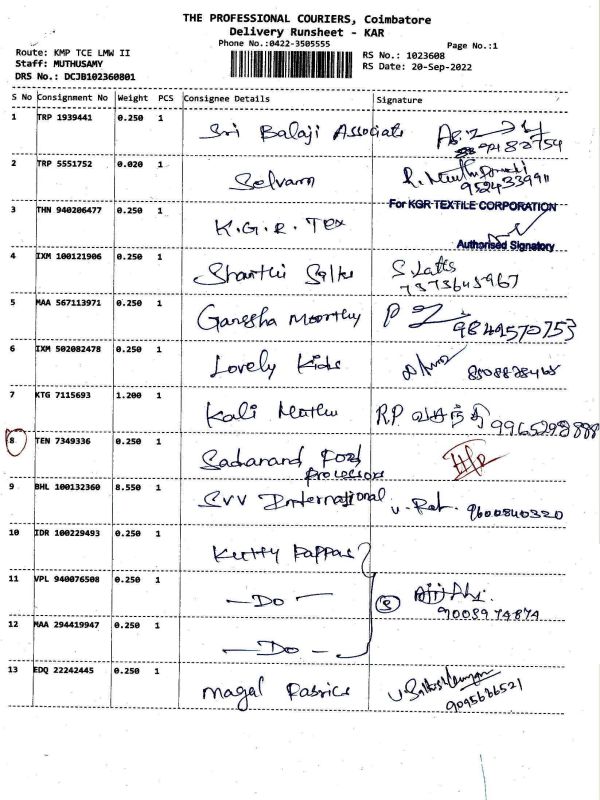 THE PROFESSIONAL COURIERS, Coimbatore
Delivery Runsheet - KAR
Phone No.:0422-3505555
Page No.:1
Route: KMP TCE LMW II
RS No.: 1023608
Staff: MUTHUSAMY
RS Date: 20-Sep-2022
DRS No.: DCJB102360801
S No Consignment No Weight PCS Consignee Details Signature
1 TRP 1939441 0.250 1 Sri Balaji Associate
2 TRP 5551752 0.020 1 Selvam
9524339911
3 THN 940206477 0.250 1 K.G.R. Tex
For KGR TEXTILE CORPORATION
Authorised Signatory
4 IXM 100121906 0.250 1
7373645967
5 MAA 567113971 0.250 1 Ganesha Moorthy 9849570753
6 IXM 502082478 0.250 1 Lovely Kids
7 KTG 7115693 1.200 1 Kali Muthu RP வசந்தி 9965298888
8 TEN 7349336 0.250 1 Sadanand Food
Processors
9 BHL 100132360 8.550 1 SVV International 9600840320
10 IDR 100229493 0.250 1 Kutty Pappas
11 VPL 940076508 0.250 1 — Do — 3
9003974874
12 MAA 294419947 0.250 1 — Do —
13 EDQ 22242445 0.250 1 Magal Fabrics
9095636521